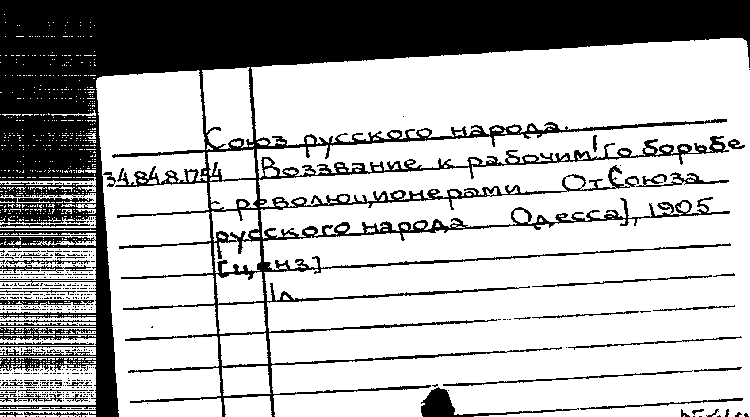 Союз русского народа.
34.84.8.1754 Воззвание к рабочим! [о борьбе
с революционерами От Союза
русского народа Одесса], 1905
[ценз]
1л